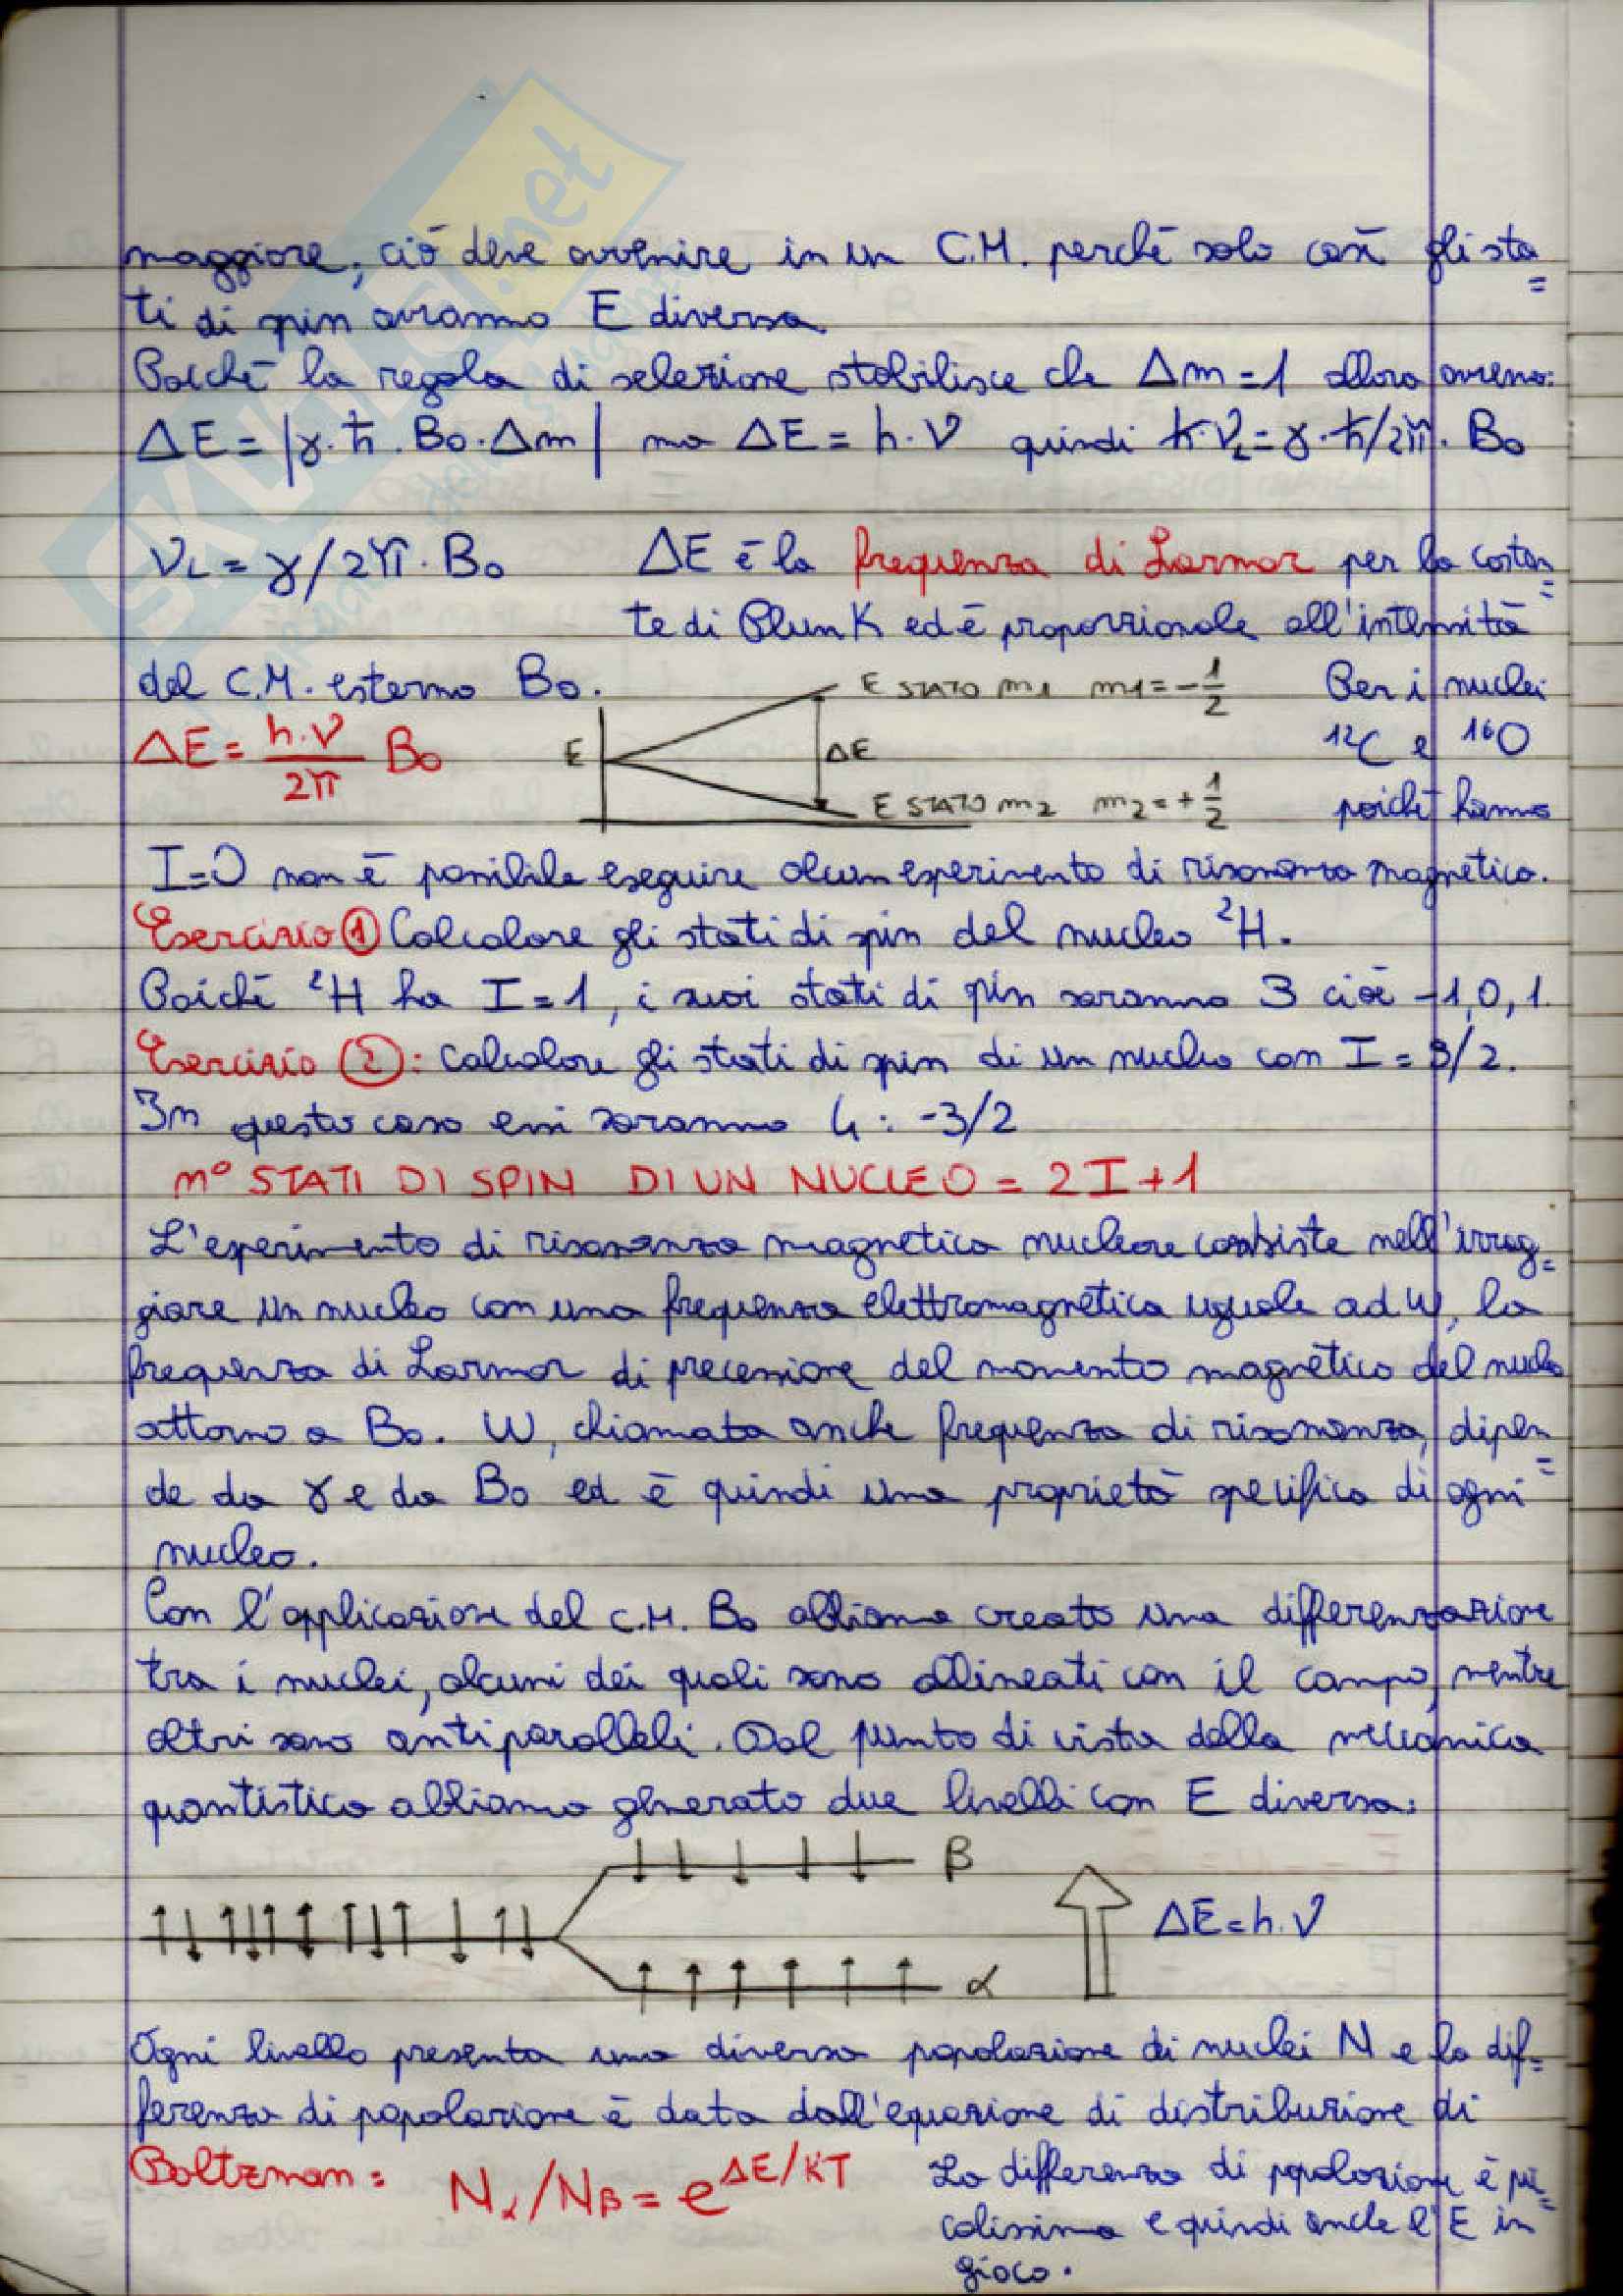 maggiore, ciò deve avvenire in un C.M. perchè solo così gli sta=
ti di spin avranno E diversa.
Poichè la regola di selezione stabilisce che Δm=1 allora avremo:
ΔE = |γ·ħ·B₀·Δm| ma ΔE = h·ν quindi h·ν_L = γ·h/2π·B₀
ν_L = γ/2π·B₀ ΔE è la frequenza di Larmor per la costan=
te di Plunk ed è proporzionale all'intensità
del C.M. esterno B₀.
E STATO m1 m1 = -1/2
Per i nuclei
ΔE = h·ν/2π B₀
E
ΔE
¹²C e ¹⁶O
E STATO m2 m2 = +1/2
poichè hanno
I=0 non è possibile eseguire alcun esperimento di risonanza magnetica.
Esercizio ① Calcolare gli stati di spin del nucleo ²H.
Poichè ²H ha I=1, i suoi stati di spin saranno 3 cioè -1,0,1.
Esercizio ②: Calcolare gli stati di spin di un nucleo con I = 3/2.
In questo caso essi saranno 4: -3/2
n° STATI DI SPIN DI UN NUCLEO = 2I+1
L'esperimento di risonanza magnetica nucleare consiste nell'irrag=
giare un nucleo con una frequenza elettromagnetica uguale ad W, la
frequenza di Larmor di precessione del momento magnetico del nucleo
attorno a B₀. W, chiamata anche frequenza di risonanza, dipen=
de da γ e da B₀ ed è quindi una proprietà specifica di ogni
nucleo.
Con l'applicazione del C.M. B₀ abbiamo creato una differenzazione
tra i nuclei, alcuni dei quali sono allineati con il campo, mentre
altri sono antiparalleli. Dal punto di vista della meccanica
quantistica abbiamo generato due livelli con E diversa:
β
ΔE = h·ν
α
Ogni livello presenta una diversa popolazione di nuclei N e la dif=
ferenza di popolazione è data dall'equazione di distribuzione di
Boltzman: Nα/Nβ = e^ΔE/KT
La differenza di popolazione è pi=
colissima e quindi anche l'E in
gioco.
SKUOLA.net